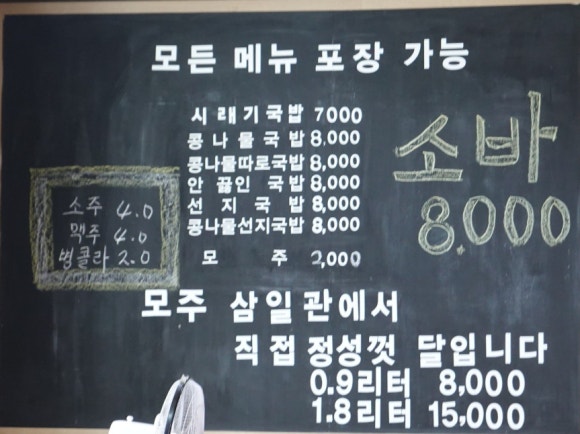 모든 메뉴 포장 가능
시래기국밥 7000
콩나물국밥 8,000
콩나물따로국밥 8,000
안끓인 국밥 8,000
선지국밥 8,000
콩나물선지국밥 8,000
모주 2,000
소바
8.000
소주 4.0
맥주 4.0
병콜라 2.0
모주 삼일관에서
직접 정성껏 달입니다
0.9리터 8,000
1.8리터 15,000